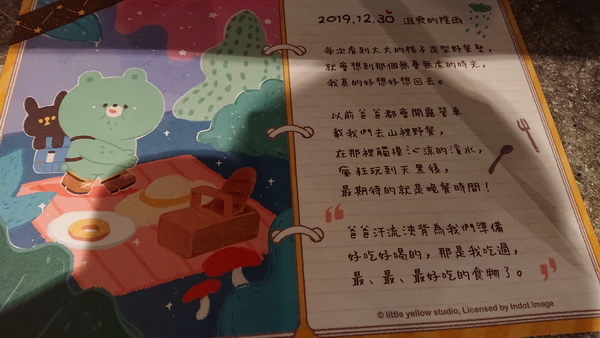 2019.12.30 沮喪的陰雨
每次看到大大的格子造型野餐墊,
就會想到那個無憂無慮的時光,
我真的好想好想回去。
以前爸爸都會開露營車
載我們去山裡野餐,
在那裡觸摸沁涼的溪水,
瘋狂玩到天黑後,
最期待的就是晚餐時間!
爸爸汗流浹背為我們準備
好吃好喝的, 那是我吃過,
最、最、最好吃的食物了。
© little yellow studio, Licensed by Indot Image